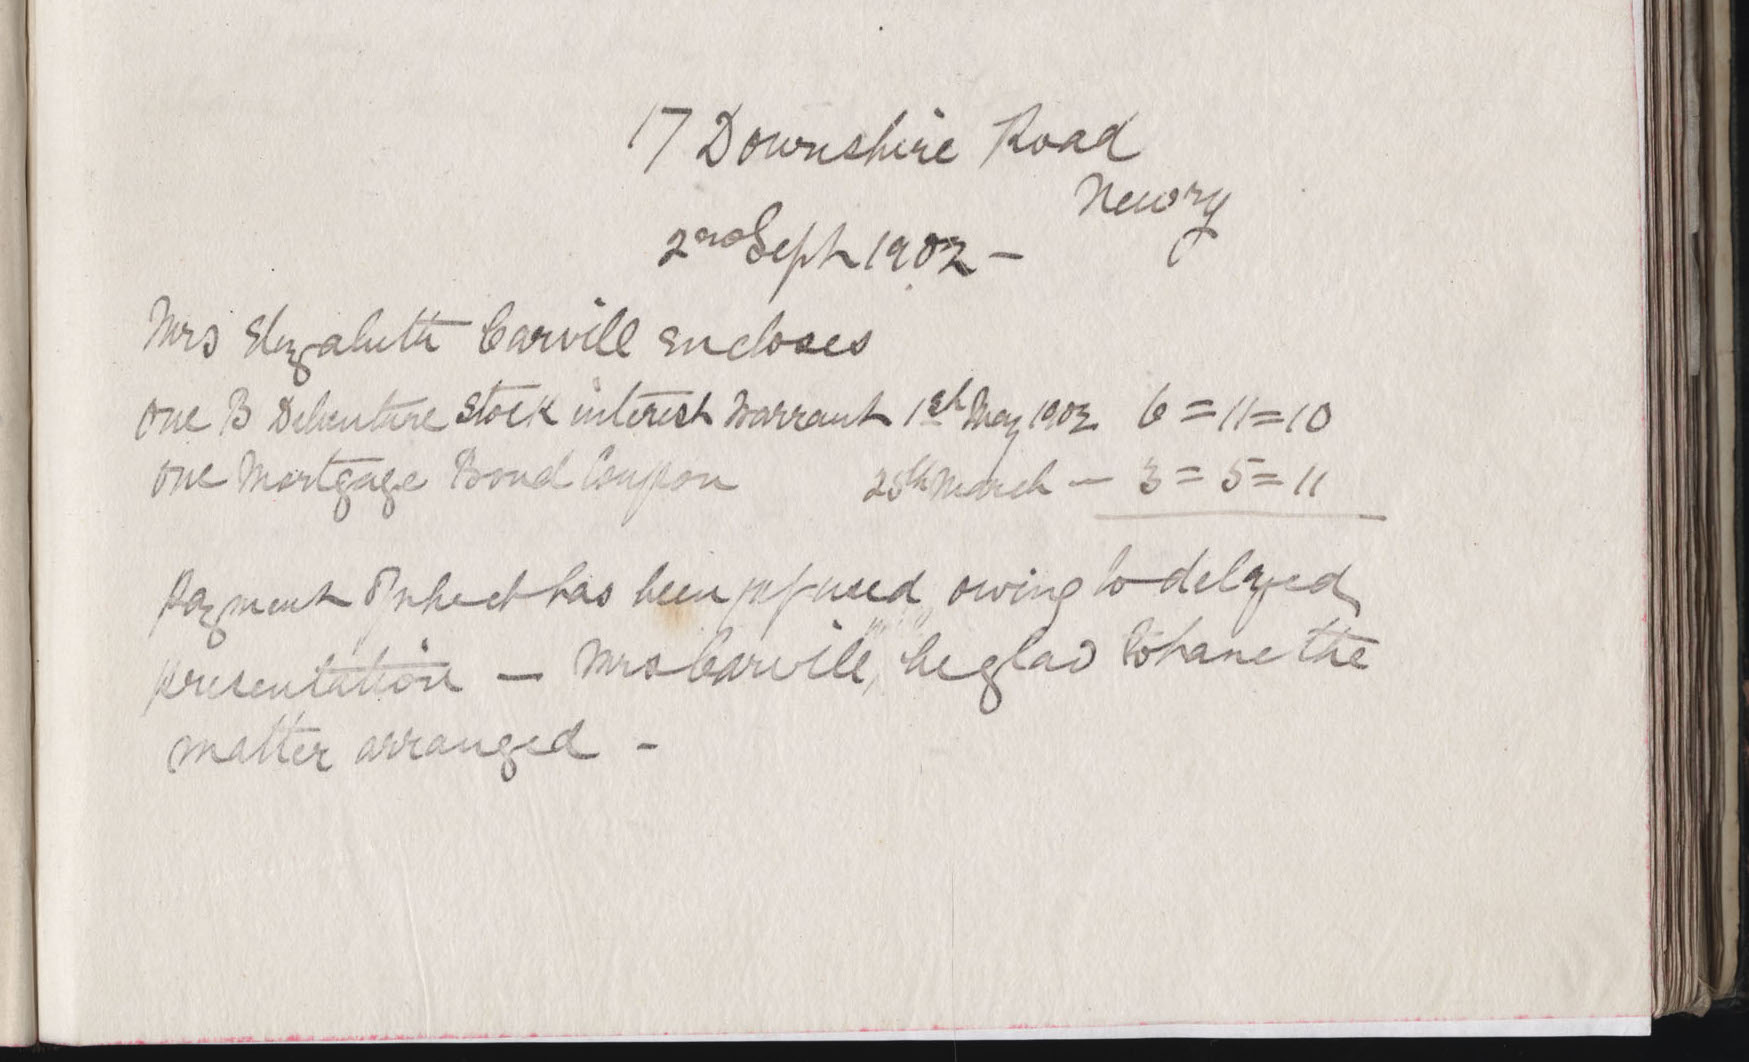 17 Downshire Road
Newry
2nd Sept 1902 —
Mrs Elizabeth Carvill encloses
One B Debenture Stock interest Warrant 1st May 1902 6 = 11 = 10
One Mortgage Bond Coupon 25th March — 3 = 5 = 11
Payment of which has been refused, owing to delayed
presentation — Mrs Carvill, be glad to have the
matter arranged -